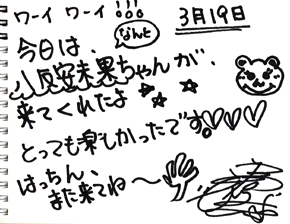 ワーイ ワーイ!!! 3月19日
なんと
今日は、
小反安未果ちゃんが、
来てくれたよ
とっても楽しかったです♡♡♡
はっちん、
また来てね〜